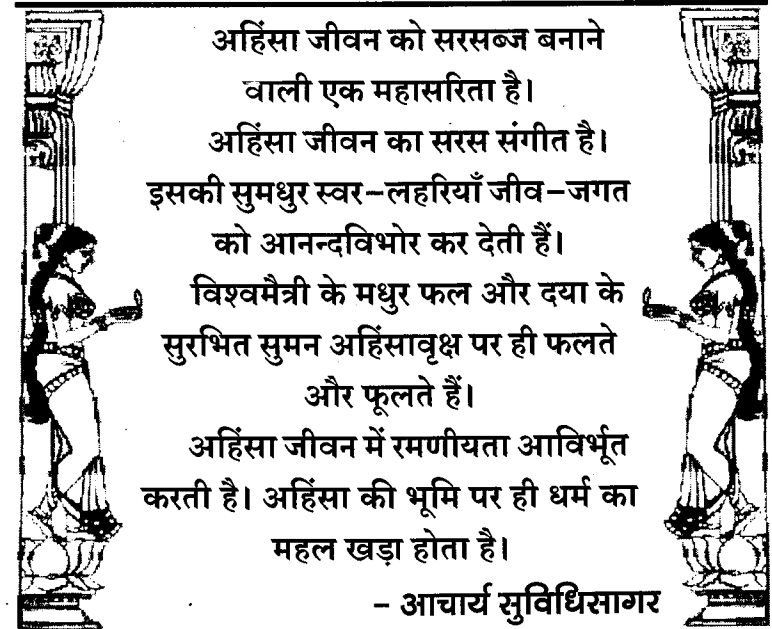 अहिंसा जीवन को सरसब्ज बनाने
वाली एक महासरिता है।
अहिंसा जीवन का सरस संगीत है।
इसकी सुमधुर स्वर-लहरियाँ जीव-जगत
को आनन्दविभोर कर देती हैं।
विश्वमैत्री के मधुर फल और दया के
सुरभित सुमन अहिंसावृक्ष पर ही फलते
और फूलते हैं।
अहिंसा जीवन में रमणीयता आविर्भूत
करती है। अहिंसा की भूमि पर ही धर्म का
महल खड़ा होता है।
- आचार्य सुविधिसागर